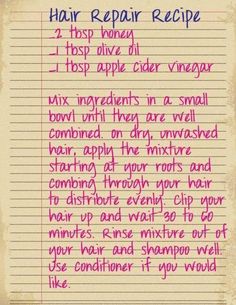 Hair Repair Recipe
_2 tbsp honey
_1 tbsp olive oil
_1 tbsp apple cider vinegar
Mix ingredients in a small
bowl until they are well
combined. On dry, unwashed
hair, apply the mixture
starting at your roots and
combing through your hair
to distribute evenly. Clip your
hair up and wait 30 to 60
minutes. Rinse mixture out of
your hair and shampoo well.
Use conditioner if you would
like.